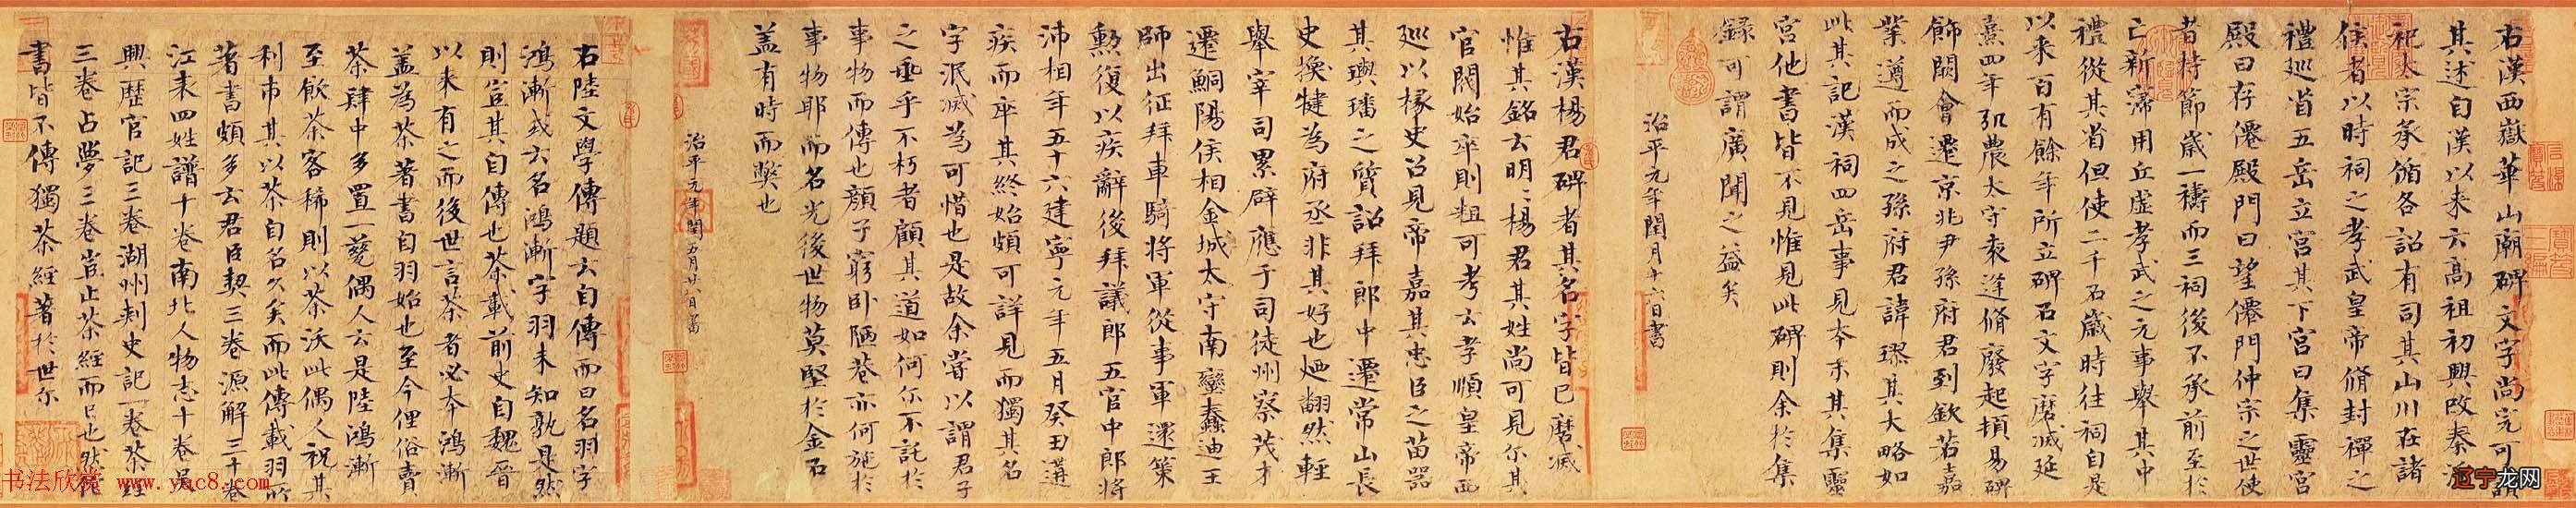 右漢西嶽華山廟碑文字尚完可讀
其述自漢以來云高祖初興改秦淫
祀太宗承循各詔有司其山川在諸
侯者以時祠之孝武皇帝脩封禪之
禮巡省五岳立宮其下宮曰集靈宮
殿曰存僊殿門曰望僊門仲宗之世使
者持節歲一禱而三祠後不承前至於
亡新寖用丘虛孝武之元事舉其中
禮從其省但使二千石歲時往祠自是
以来百有餘年所立碑石文字磨滅延
熹四年弘農太守袁逢脩廢起頓易碑
飾闕會遷京兆尹孫府君到欽若嘉
業遵而成之孫府君諱璆其大略如
此其記漢祠四岳事見本末其集靈
宮他書皆不見惟見此碑則余於集
錄可謂廣聞之益矣
治平元年閏月十六日書
右漢楊君碑者其名字皆已磨滅
惟其銘云明明楊君其姓尚可見尔其
官閥始卒則粗可考云孝順皇帝西
巡以掾史召見帝嘉其忠臣之苗器
其璵璠之質詔拜郎中遷常山長
史換犍為府丞非其好也迺翻然輕
舉宰司累辟應于司徒州察茂才
遷鮦陽侯相金城太守南蠻蠢迪王
師出征拜車騎將軍從事軍還策
勲復以疾辭後拜議郎五官中郎將
沛相年五十六建寧元年五月癸丑遘
疾而卒其終始頗可詳見而獨其名
字泯滅為可惜也是故余嘗以謂君子
之垂乎不朽者顧其道如何尔不託於
事物而傳也顏子窮卧陋巷亦何施於
事物耶而名光後世物莫堅於金石
盖有時而弊也
治平元年閏五月廿八日書
右陸文學傳題云自傳而曰名羽字
鴻漸或云名鴻漸字羽未知孰是然
則豈其自傳也茶載前史自魏晉
以來有之而後世言茶者必本鴻漸
盖為茶著書自羽始也至今俚俗賣
茶肆中多置一甆偶人云是陸鴻漸
至飲茶客稀則以茶沃此偶人祝其
利市其以茶自名久矣而此傳載羽所
著書頗多云君臣契三卷源解三十卷
江表四姓譜十卷南北人物志十卷吳
興歷官記三卷湖州刺史記一卷茶經
三卷占夢三卷豈止茶經而已也然他
書皆不傳獨茶經著於世尔
书法欣赏 www.yac8.com
辽宁龙网